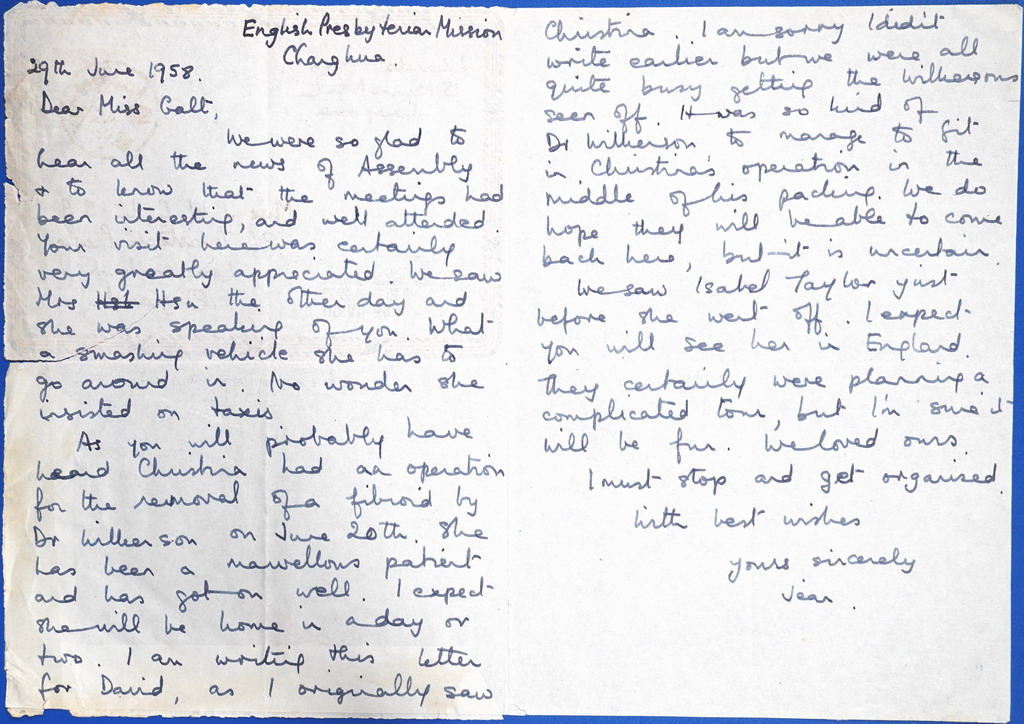 English Presbyterian Mission
Changhua
29th June 1958.
Dear Miss Galt,
We were so glad to
hear all the news of Assembly
& to know that the meetings had
been interesting, and well attended.
Your visit here was certainly
very greatly appreciated. We saw
Mrs Hsu the other day and
she was speaking of you. What
a smashing vehicle she has to
go around in. No wonder she
insisted on taxis
As you will probably have
heard Christina had an operation
for the removal of a fibroid by
Dr Wilkerson on June 20th. She
has been a marvellous patient
and has got on well. I expect
she will be home in a day or
two. I am writing this letter
for David, as I originally saw
Christina. I am sorry I didn't
write earlier but we were all
quite busy getting the Wilkersons
seen off. It was so kind of
Dr Wilkerson to manage to fit
in Christina's operation in the
middle of his packing. We do
hope they will be able to come
back here, but it is uncertain.
We saw Isabel Taylor just
before she went off. I expect
you will see her in England.
They certainly were planning a
complicated tour, but I'm sure it
will be fun. We loved ours.
I must stop and get organised.
With best wishes
yours sincerely
Jean.